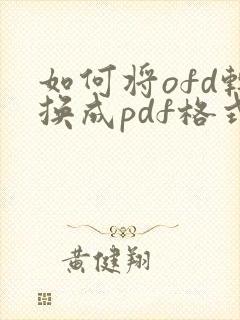 如何将ofd转
换成pdf格式
黄健翔